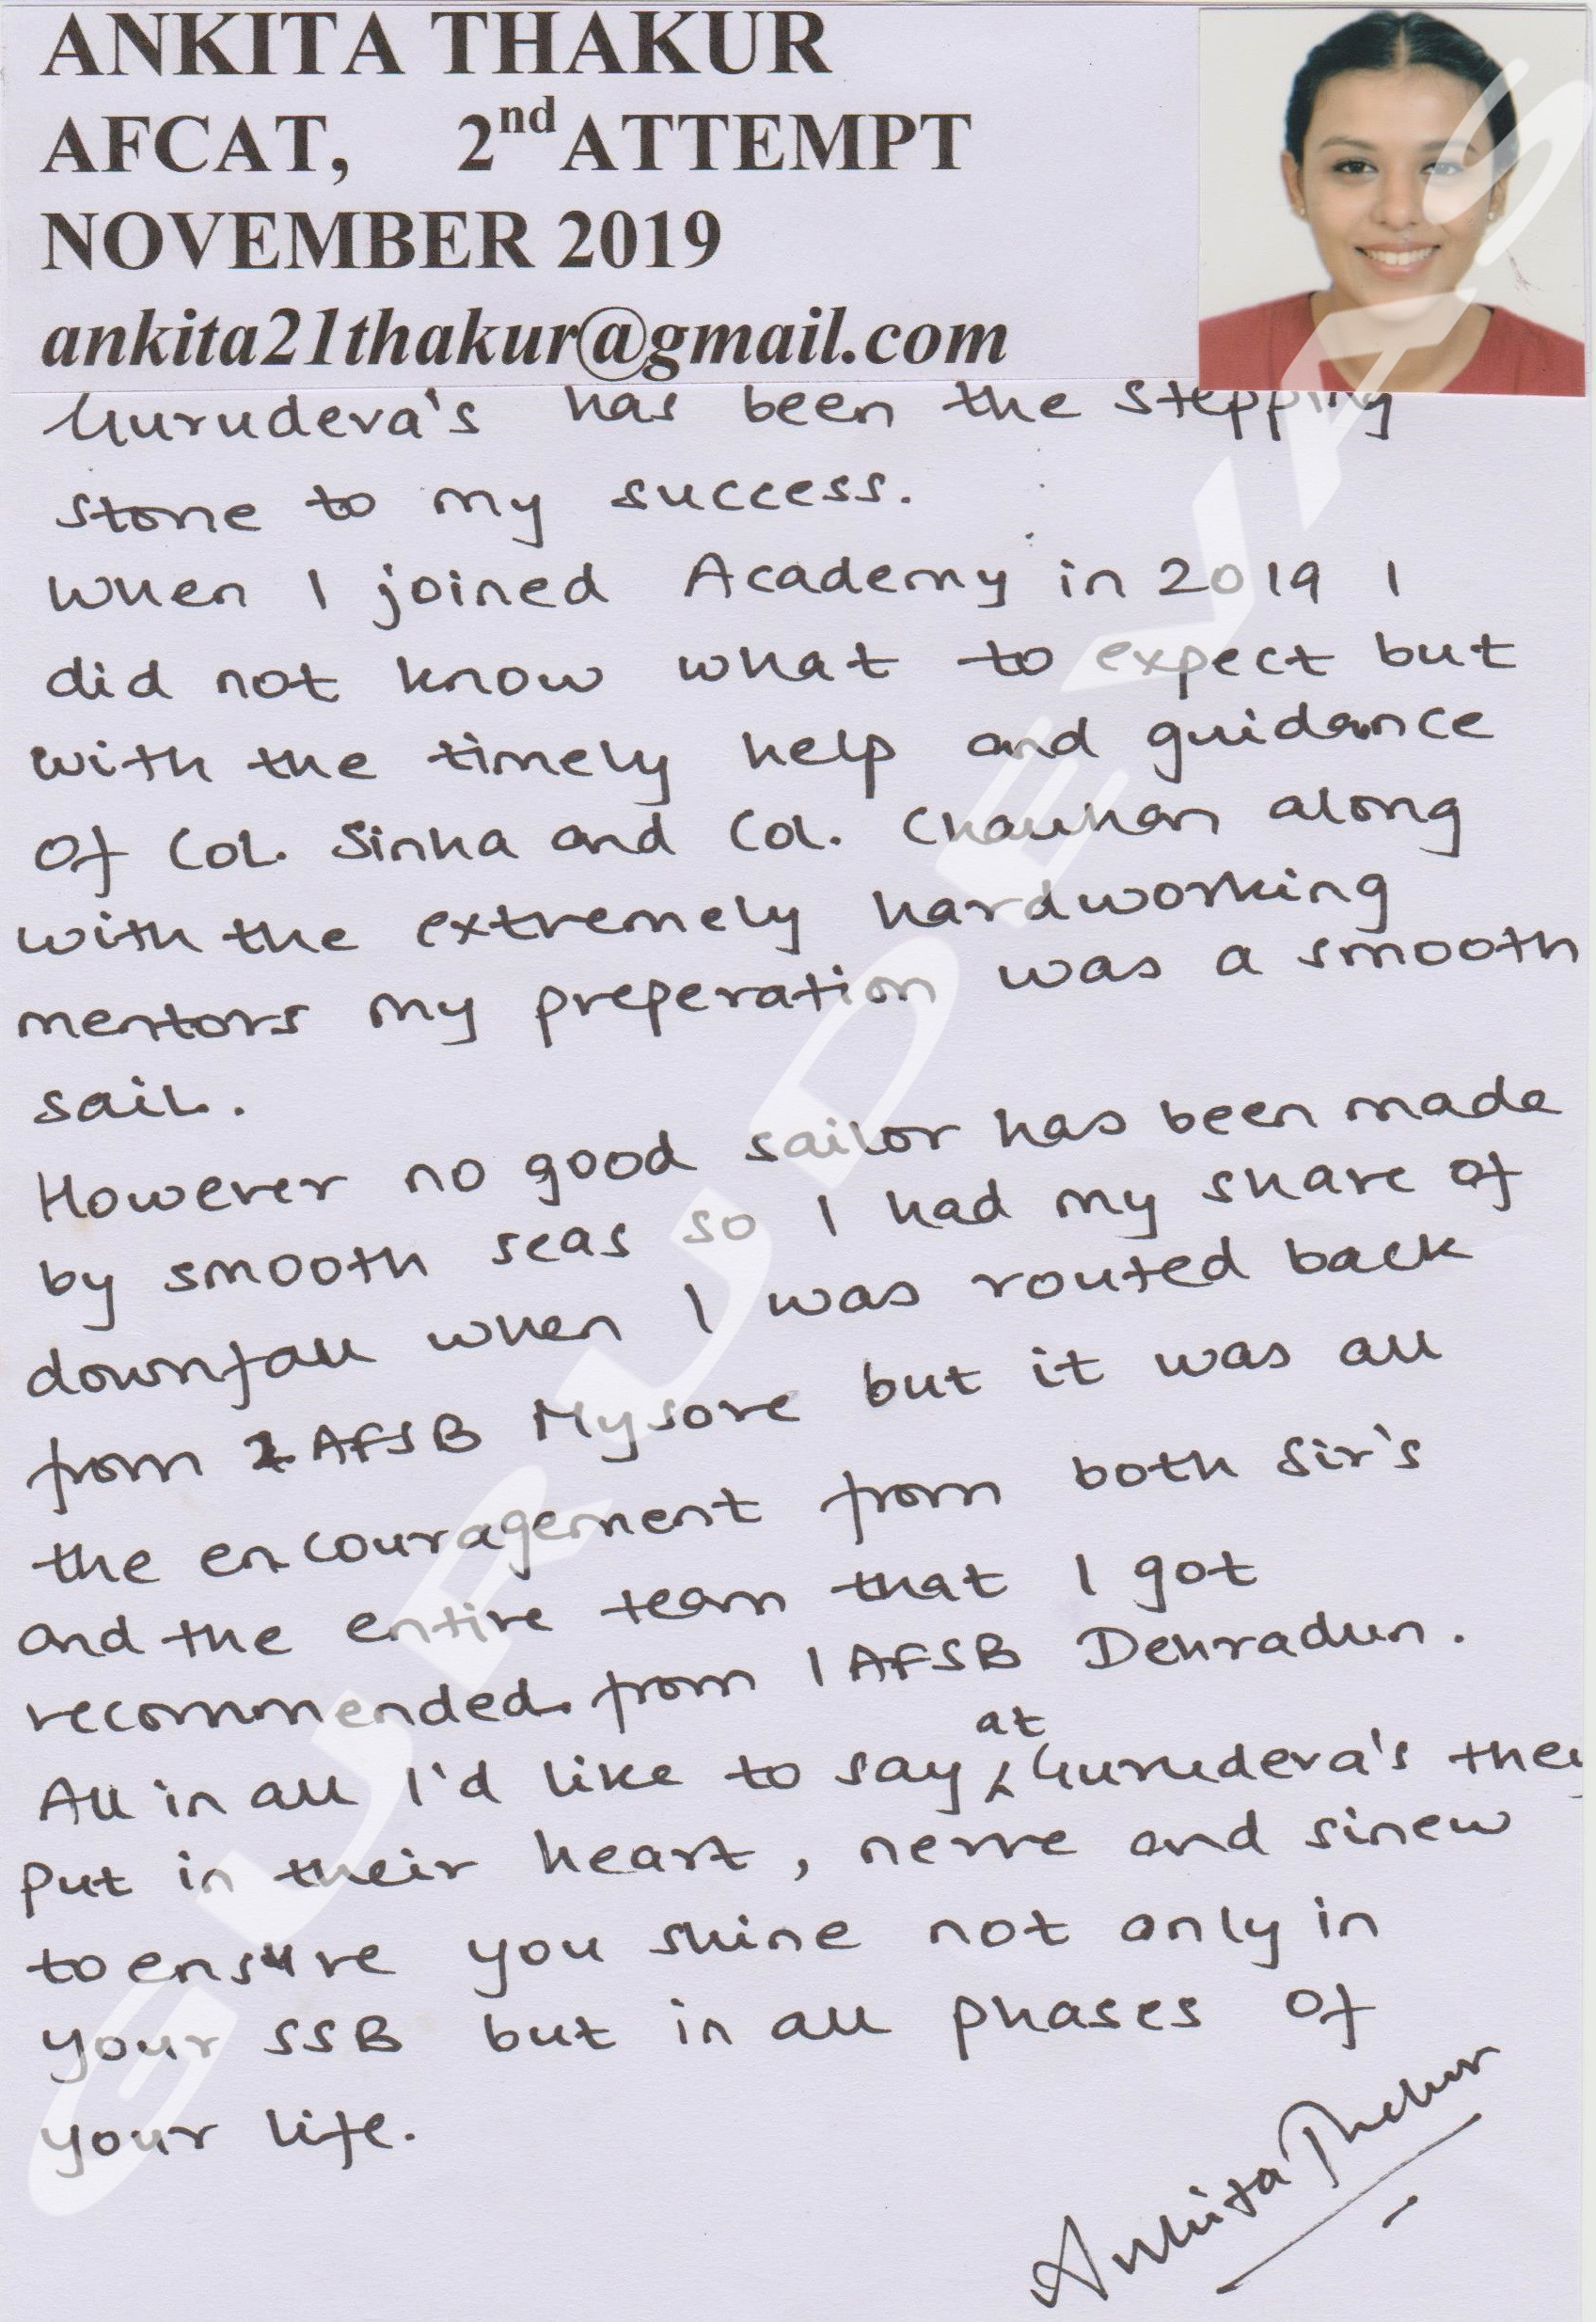 ANKITA THAKUR
AFCAT, 2nd ATTEMPT
NOVEMBER 2019
ankita21thakur@gmail.com
Gurudeva's has been the stepping
stone to my success.
When I joined Academy in 2019 I
did not know what to expect but
with the timely help and guidance
of Col. Sinha and Col. Chauhan along
with the extremely hardworking
mentors my preperation was a smooth
sail.
However no good sailor has been made
by smooth seas so I had my share of
downfall when I was routed back
from 2 AFSB Mysore but it was all
the encouragement from both Sir's
and the entire team that I got
recommended from 1 AFSB Dehradun.
All in all I'd like to say at Gurudeva's they
put in their heart, nerve and sinew
to ensure you shine not only in
your SSB but in all phases of
your life.
Ankita Thakur
GURUDEVAS